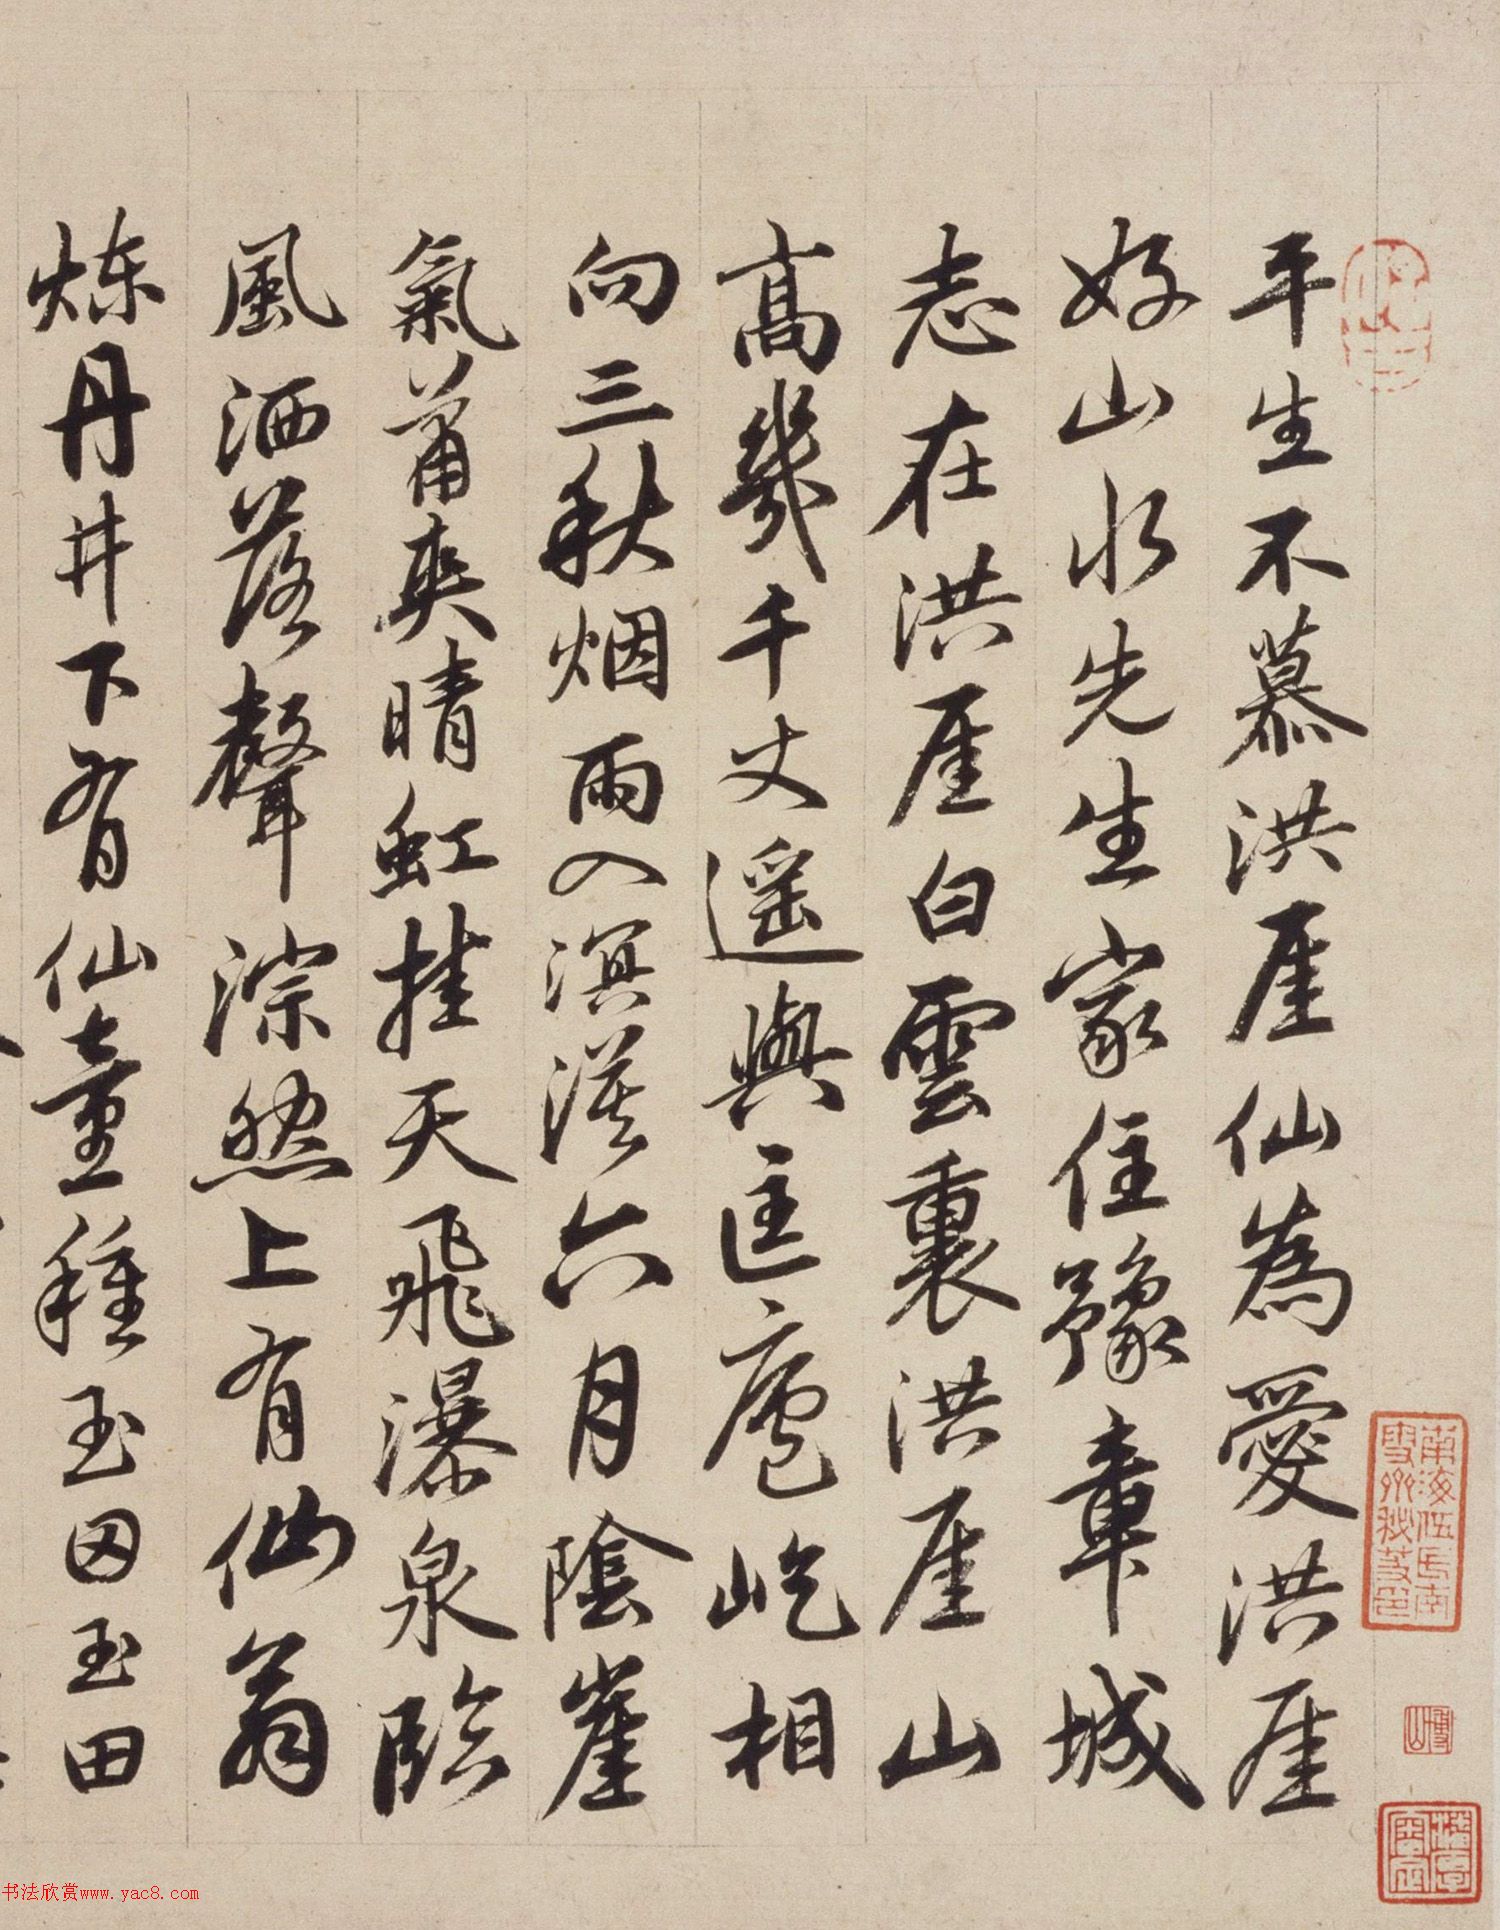 平生不慕洪厓仙為愛洪厓
好山水先生家住豫章城
志在洪厓白雲裏洪厓山
高幾千丈遥與匡廬屹相
向三秋烟雨入溟漠六月陰崖
氣蕭爽晴虹挂天飛瀑泉臨
風洒落聲淙然上有仙翁
煉丹井下有仙童種玉田玉田
书法欣赏www.yac8.com